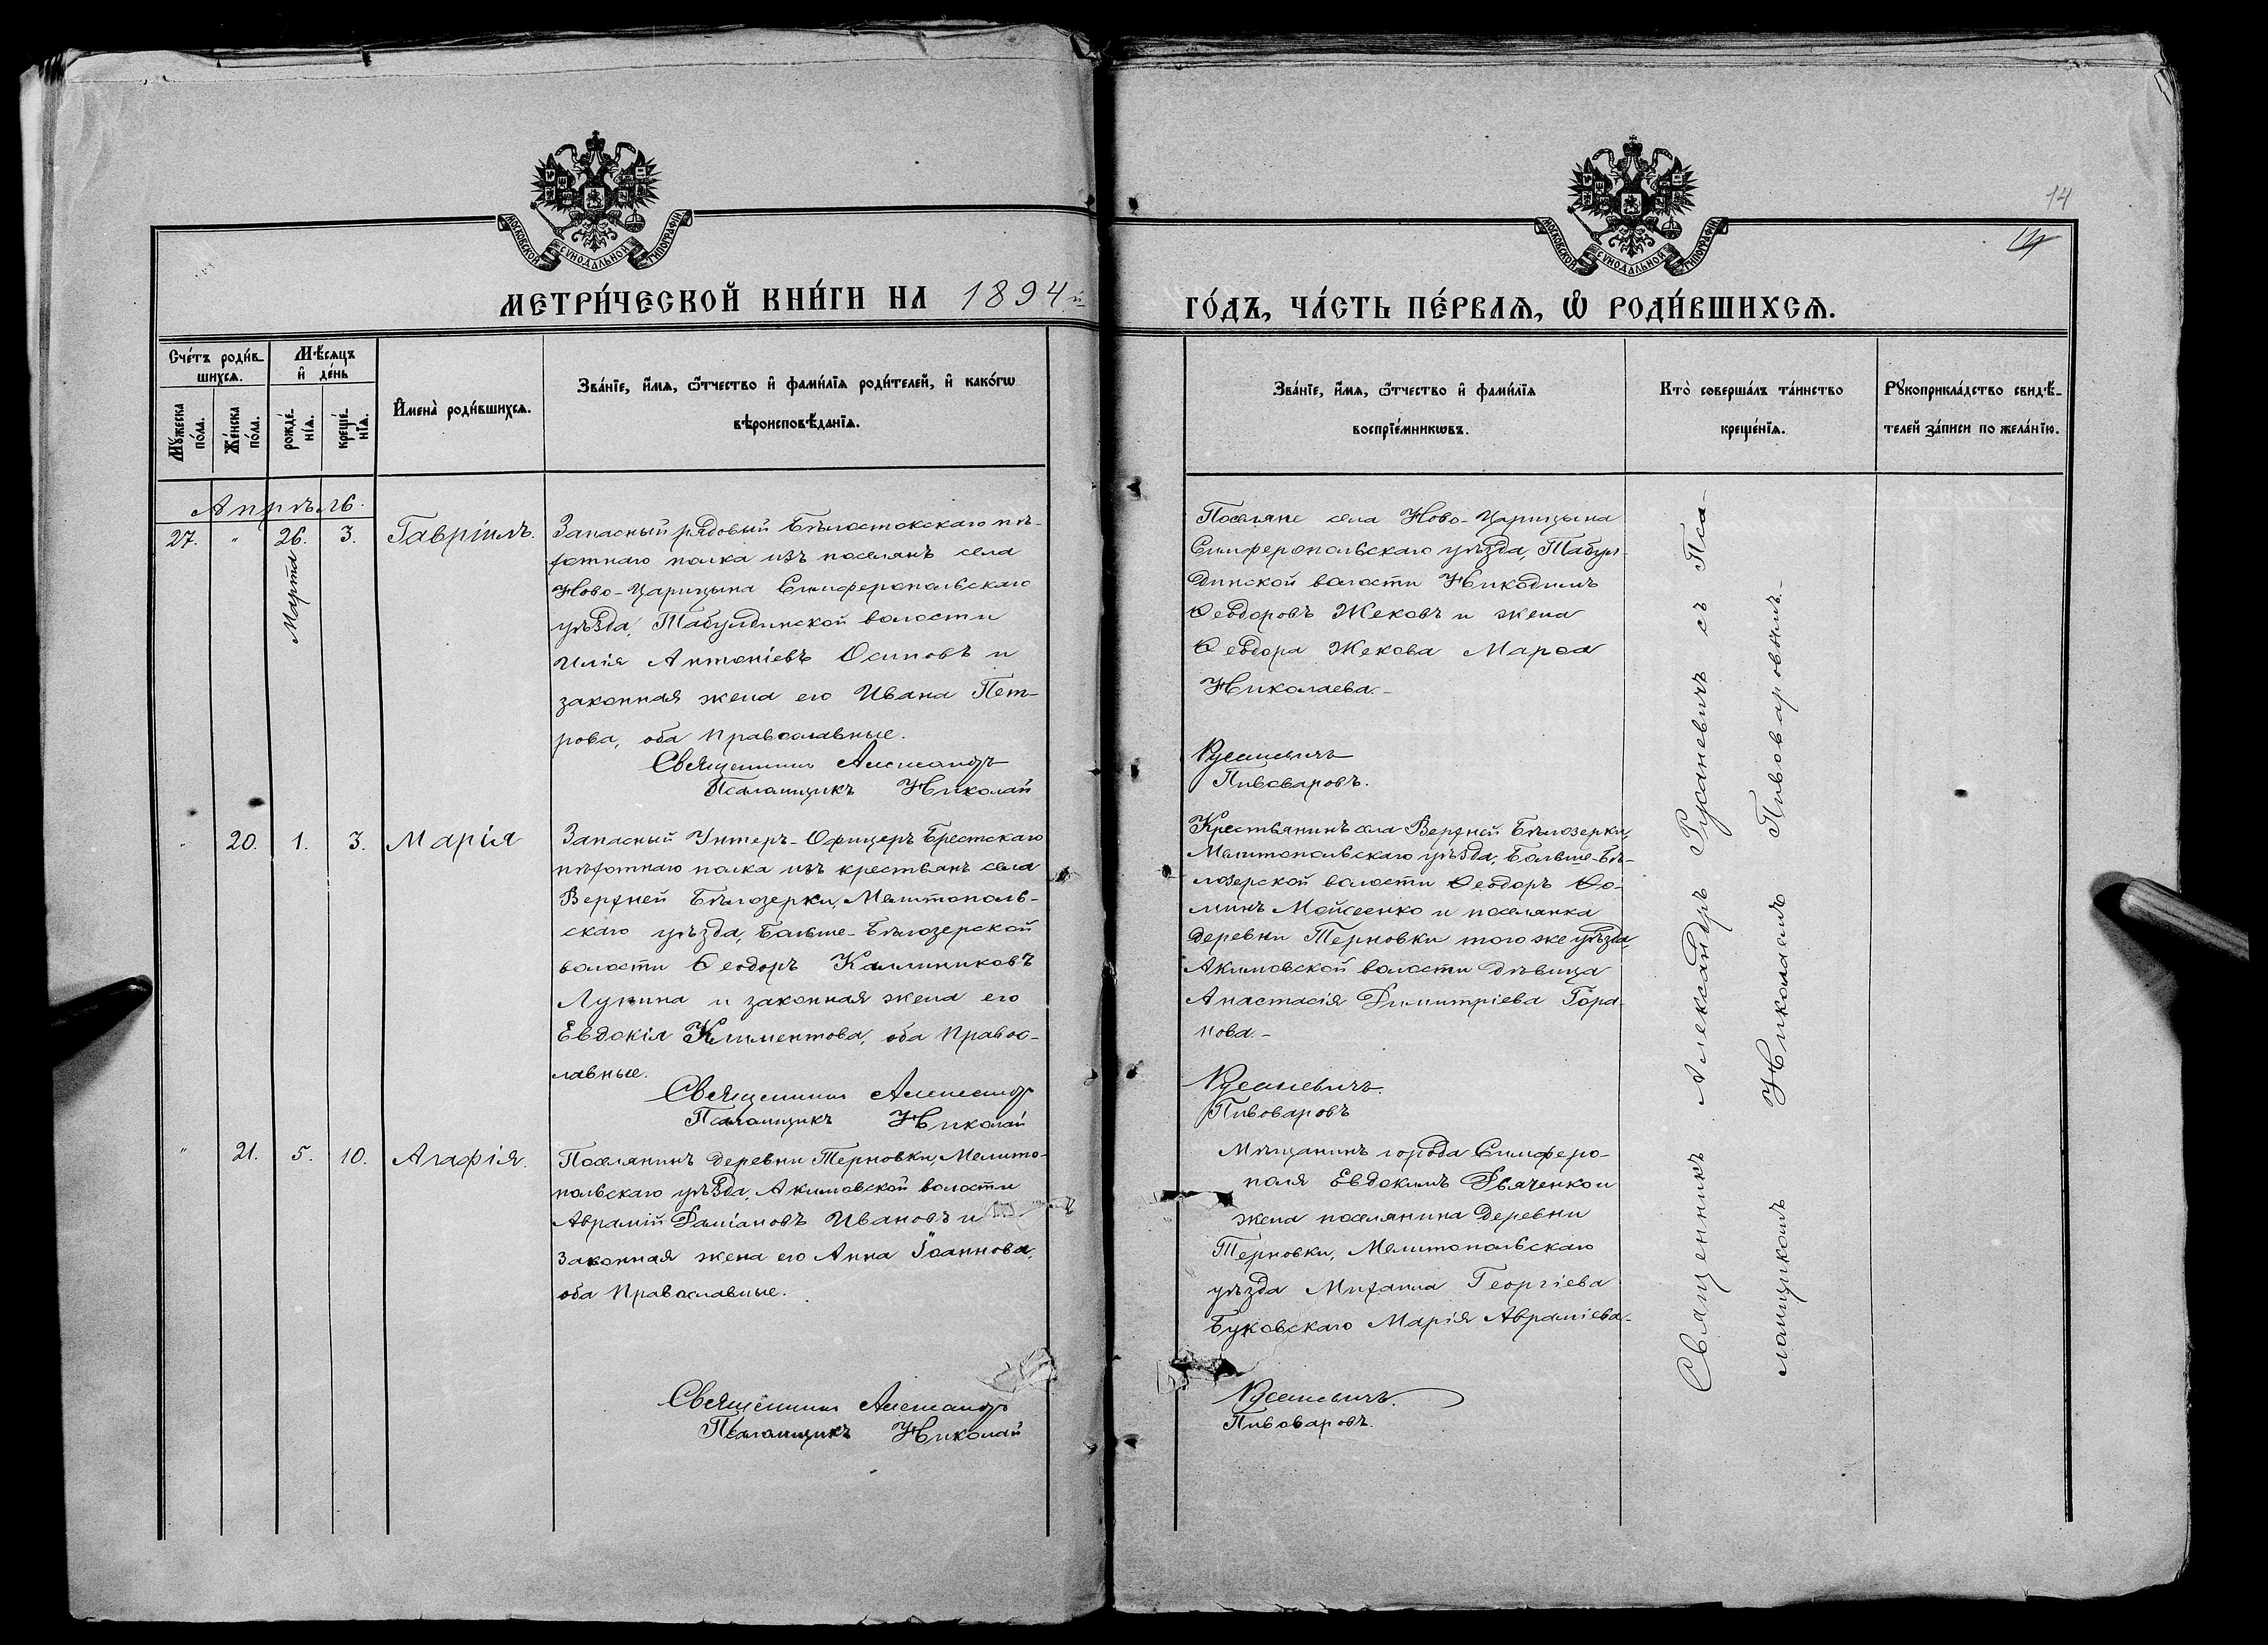 14
14
МОСКОВСКОЙ СѴНОДАЛЬНОЙ ТИПОГРАФІИ
МОСКОВСКОЙ СѴНОДАЛЬНОЙ ТИПОГРАФІИ
МЕТРИ́ЧЕСКОЙ КНИ́ГИ НА 1894.й
ГО́ДЪ, ЧА́СТЬ ПЕ́РВАЯ, Ѡ РОДИ́ВШИХСЯ.
Сче́тъ роди́в-
шихся.
Мꙋ́жеска по́ла.
Же́нска по́ла.
Мѣ́сяцъ
и҆ де́нь
рожде́-нїя.
креще́-нїя.
И҆мена̀ роди́вшихся.
Зва́нїе, и҆́мя, ѻ҆́тчество и҆ фами́лїя роди́телей, и҆ како́гѡ
вѣроисповѣ́данїя.
Зва́нїе, и҆́мя, ѻ҆́тчество и҆ фами́лїя
воспрїе́мникѡвъ.
Кто̀ соверша́лъ та́инство
креще́нїя.
Рꙋкоприкла́дство свидѣ́-
телей за́писи по жела́нїю.
Апрѣль.
27. " 26. 3. Гавріилъ.
Марта
Запасный рядовый Бѣлостокскаго пѣ-
хотнаго полка изъ поселянъ села
Ново-Царицына Симферопольскаго
уѣзда, Табулдинской волости
Илія Антоніевъ Осиповъ и
законная жена его Ивана Пет-
рова, оба православные.
Священникъ Александръ
Псаломщикъ Николай
Поселяне села Ново-Царицына
Симферопольскаго уѣзда, Табул-
динской волости Никодимъ
Ѳеодоровъ Жековъ и жена
Ѳеодора Жекова Марѳа
Николаева.-
Русаневичъ
Пивоваровъ.
" 20. 1. 3. Марія
Запасный Унтеръ-Офицеръ Брестскаго
пѣхотнаго полка изъ крестьянъ села
Верхней Бѣлозерки, Мелитополь-
скаго уѣзда, Больше-Бѣлозерской
волости Ѳеодоръ Каллиниковъ
Лупина и законная жена его
Евдокія Климентова, оба правос-
лавные.
Священникъ Александръ
Псаломщикъ Николай
Крестьянинъ села Верхней Бѣлозерки,
Мелитопольскаго уѣзда, Больше-Бѣ-
лозерской волости Ѳеодоръ Ѳо-
минъ Мойсеенко и поселянка
деревни Терновки того же уѣзда,
Акимовской волости дѣвица
Анастасія Димитріева Гора-
нова.-
Русаневичъ.
Пивоваровъ
" 21. 5. 10. Агафія.
Поселянинъ деревни Терновки, Мелито-
польскаго уѣзда, Акимовской волости
Аврамій Даміановъ Ивановъ и
законная жена его Анна Іоаннова,
оба православные.
Священникъ Александръ
Псаломщикъ Николай
Мѣщанинъ города Симферо-
поля Евдокимъ Дьяченко и
жена поселянина деревни
Терновки, Мелитопольскаго
уѣзда Михаила Георгіева
Буковскаго Марія Авраміева.-
Русаневичъ.
Пивоваровъ.
Священникъ Александръ Русаневичъ съ Пса-
ломщикомъ Николаемъ Пивоваровымъ.-